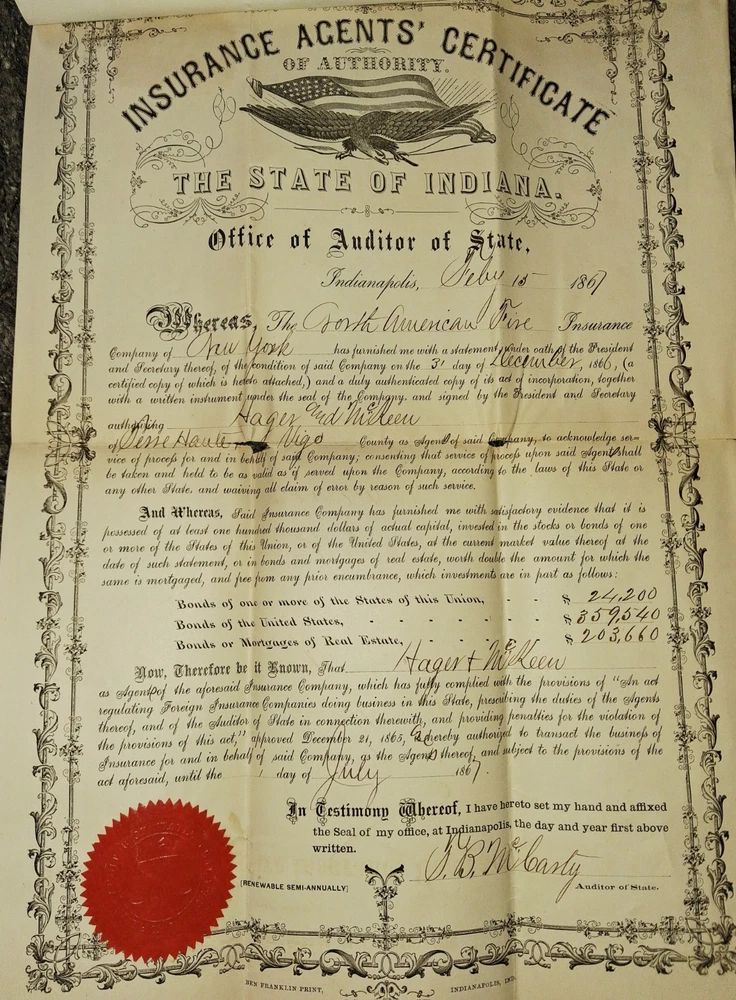 INSURANCE AGENTS' CERTIFICATE
OF AUTHORITY.
THE STATE OF INDIANA.
Office of Auditor of State,
Indianapolis, Feby 15 1867
Whereas, The North American Fire Insurance
Company of New York has furnished me with a statement under oath of the President
and Secretary thereof, of the condition of said Company on the 31 day of December, 1866, (a
certified copy of which is hereto attached,) and a duly authenticated copy of its act of incorporation, together
with a written instrument under the seal of the Company, and signed by the President and Secretary
authorizing Hager and McKeen
of Terre Haute Vigo County as Agents of said Company, to acknowledge ser-
vice of process for and in behalf of said Company; consenting that service of process upon said Agents shall
be taken and held to be as valid as if served upon the Company, according to the laws of this State or
any other State, and waiving all claim of error by reason of such service.
And Whereas, Said Insurance Company has furnished me with satisfactory evidence that it is
possessed of at least one hundred thousand dollars of actual capital, invested in the stocks or bonds of one
or more of the States of this Union, or of the United States, at the current market value thereof at the
date of such statement, or in bonds and mortgages of real estate, worth double the amount for which the
same is mortgaged, and free from any prior encumbrance, which investments are in part as follows:
Bonds of one or more of the States of this Union, - - $ 24,200
Bonds of the United States, - - - - - $ 359,540
Bonds or Mortgages of Real Estate, - - - - $ 203,660
Now, Therefore be it Known, That Hager & McKeen
as Agents of the aforesaid Insurance Company, which has fully complied with the provisions of "An act
regulating Foreign Insurance Companies doing business in this State, prescribing the duties of the Agents
thereof, and of the Auditor of State in connection therewith, and providing penalties for the violation of
the provisions of this act," approved December 21, 1865, are hereby authorized to transact the business of
Insurance for and in behalf of said Company, as the Agents thereof, and subject to the provisions of the
act aforesaid, until the 1 day of July 1867.
In Testimony Whereof, I have hereto set my hand and affixed
the Seal of my office, at Indianapolis, the day and year first above
written.
T. B. McCarty
[RENEWABLE SEMI-ANNUALLY] Auditor of State.
BEN FRANKLIN PRINT, INDIANAPOLIS, IND.